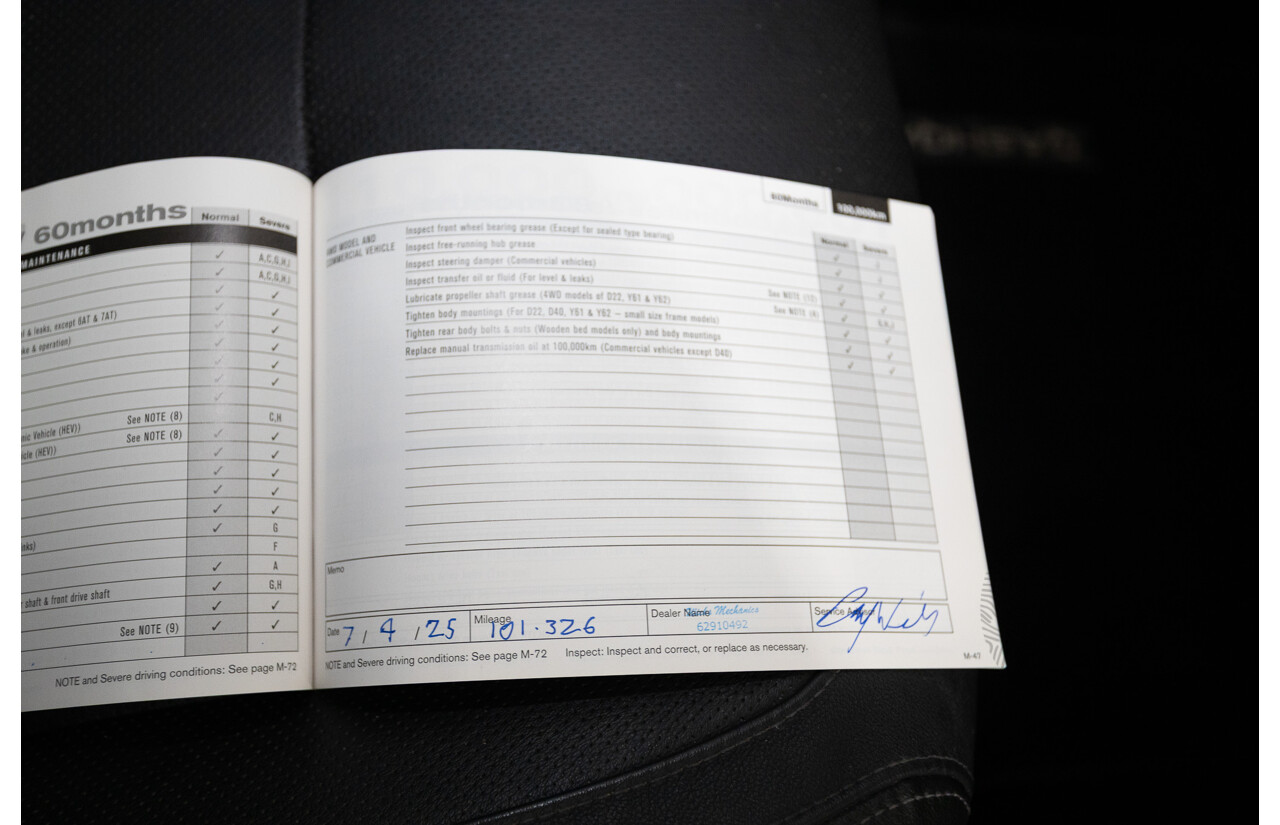 60months
Normal
Severe
MAINTENANCE
✓ A,C,G,H,I
✓ A,C,G,H,I
✓ ✓
✓ ✓
l & leaks, except 6AT & 7AT) ✓ ✓
ke & operation) ✓ ✓
✓ ✓
✓ ✓
✓
See NOTE (8) C,H
nic Vehicle (HEV)) See NOTE (8) ✓ ✓
icle (HEV)) ✓ ✓
✓ ✓
✓ ✓
✓ ✓
✓ G
nks) F
✓ A
shaft & front drive shaft ✓ G,H
✓ ✓
See NOTE (9) ✓ ✓
NOTE and Severe driving conditions: See page M-72
60Months
100,000km
Normal Severe
4WD MODEL AND
COMMERCIAL VEHICLE
Inspect front wheel bearing grease (Except for sealed type bearing)
Inspect free-running hub grease
Inspect steering damper (Commercial vehicles)
Inspect transfer oil or fluid (For level & leaks)
Lubricate propeller shaft grease (4WD models of D22, Y61 & Y62) See NOTE (12)
Tighten body mountings (For D22, D40, Y61 & Y62 – small size frame models) See NOTE (4)
Tighten rear body bolts & nuts (Wooden bed models only) and body mountings
Replace manual transmission oil at 100,000km (Commercial vehicles except D40)
Memo
Date 7 / 4 / 25
Mileage 101.326
Dealer Name Mechanics
62910492
Service Advisor
NOTE and Severe driving conditions: See page M-72 Inspect: Inspect and correct, or replace as necessary.
M-47